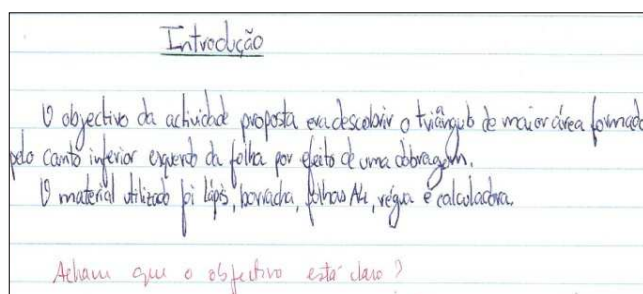 Introdução
O objectivo da actividade proposta era descobrir o triângulo de maior área formado
pelo canto inferior esquerdo da folha por efeito de uma dobragem.
O material utilizado foi lápis, borracha, folhas A4, régua e calculadora.
Acham que o objectivo está claro?